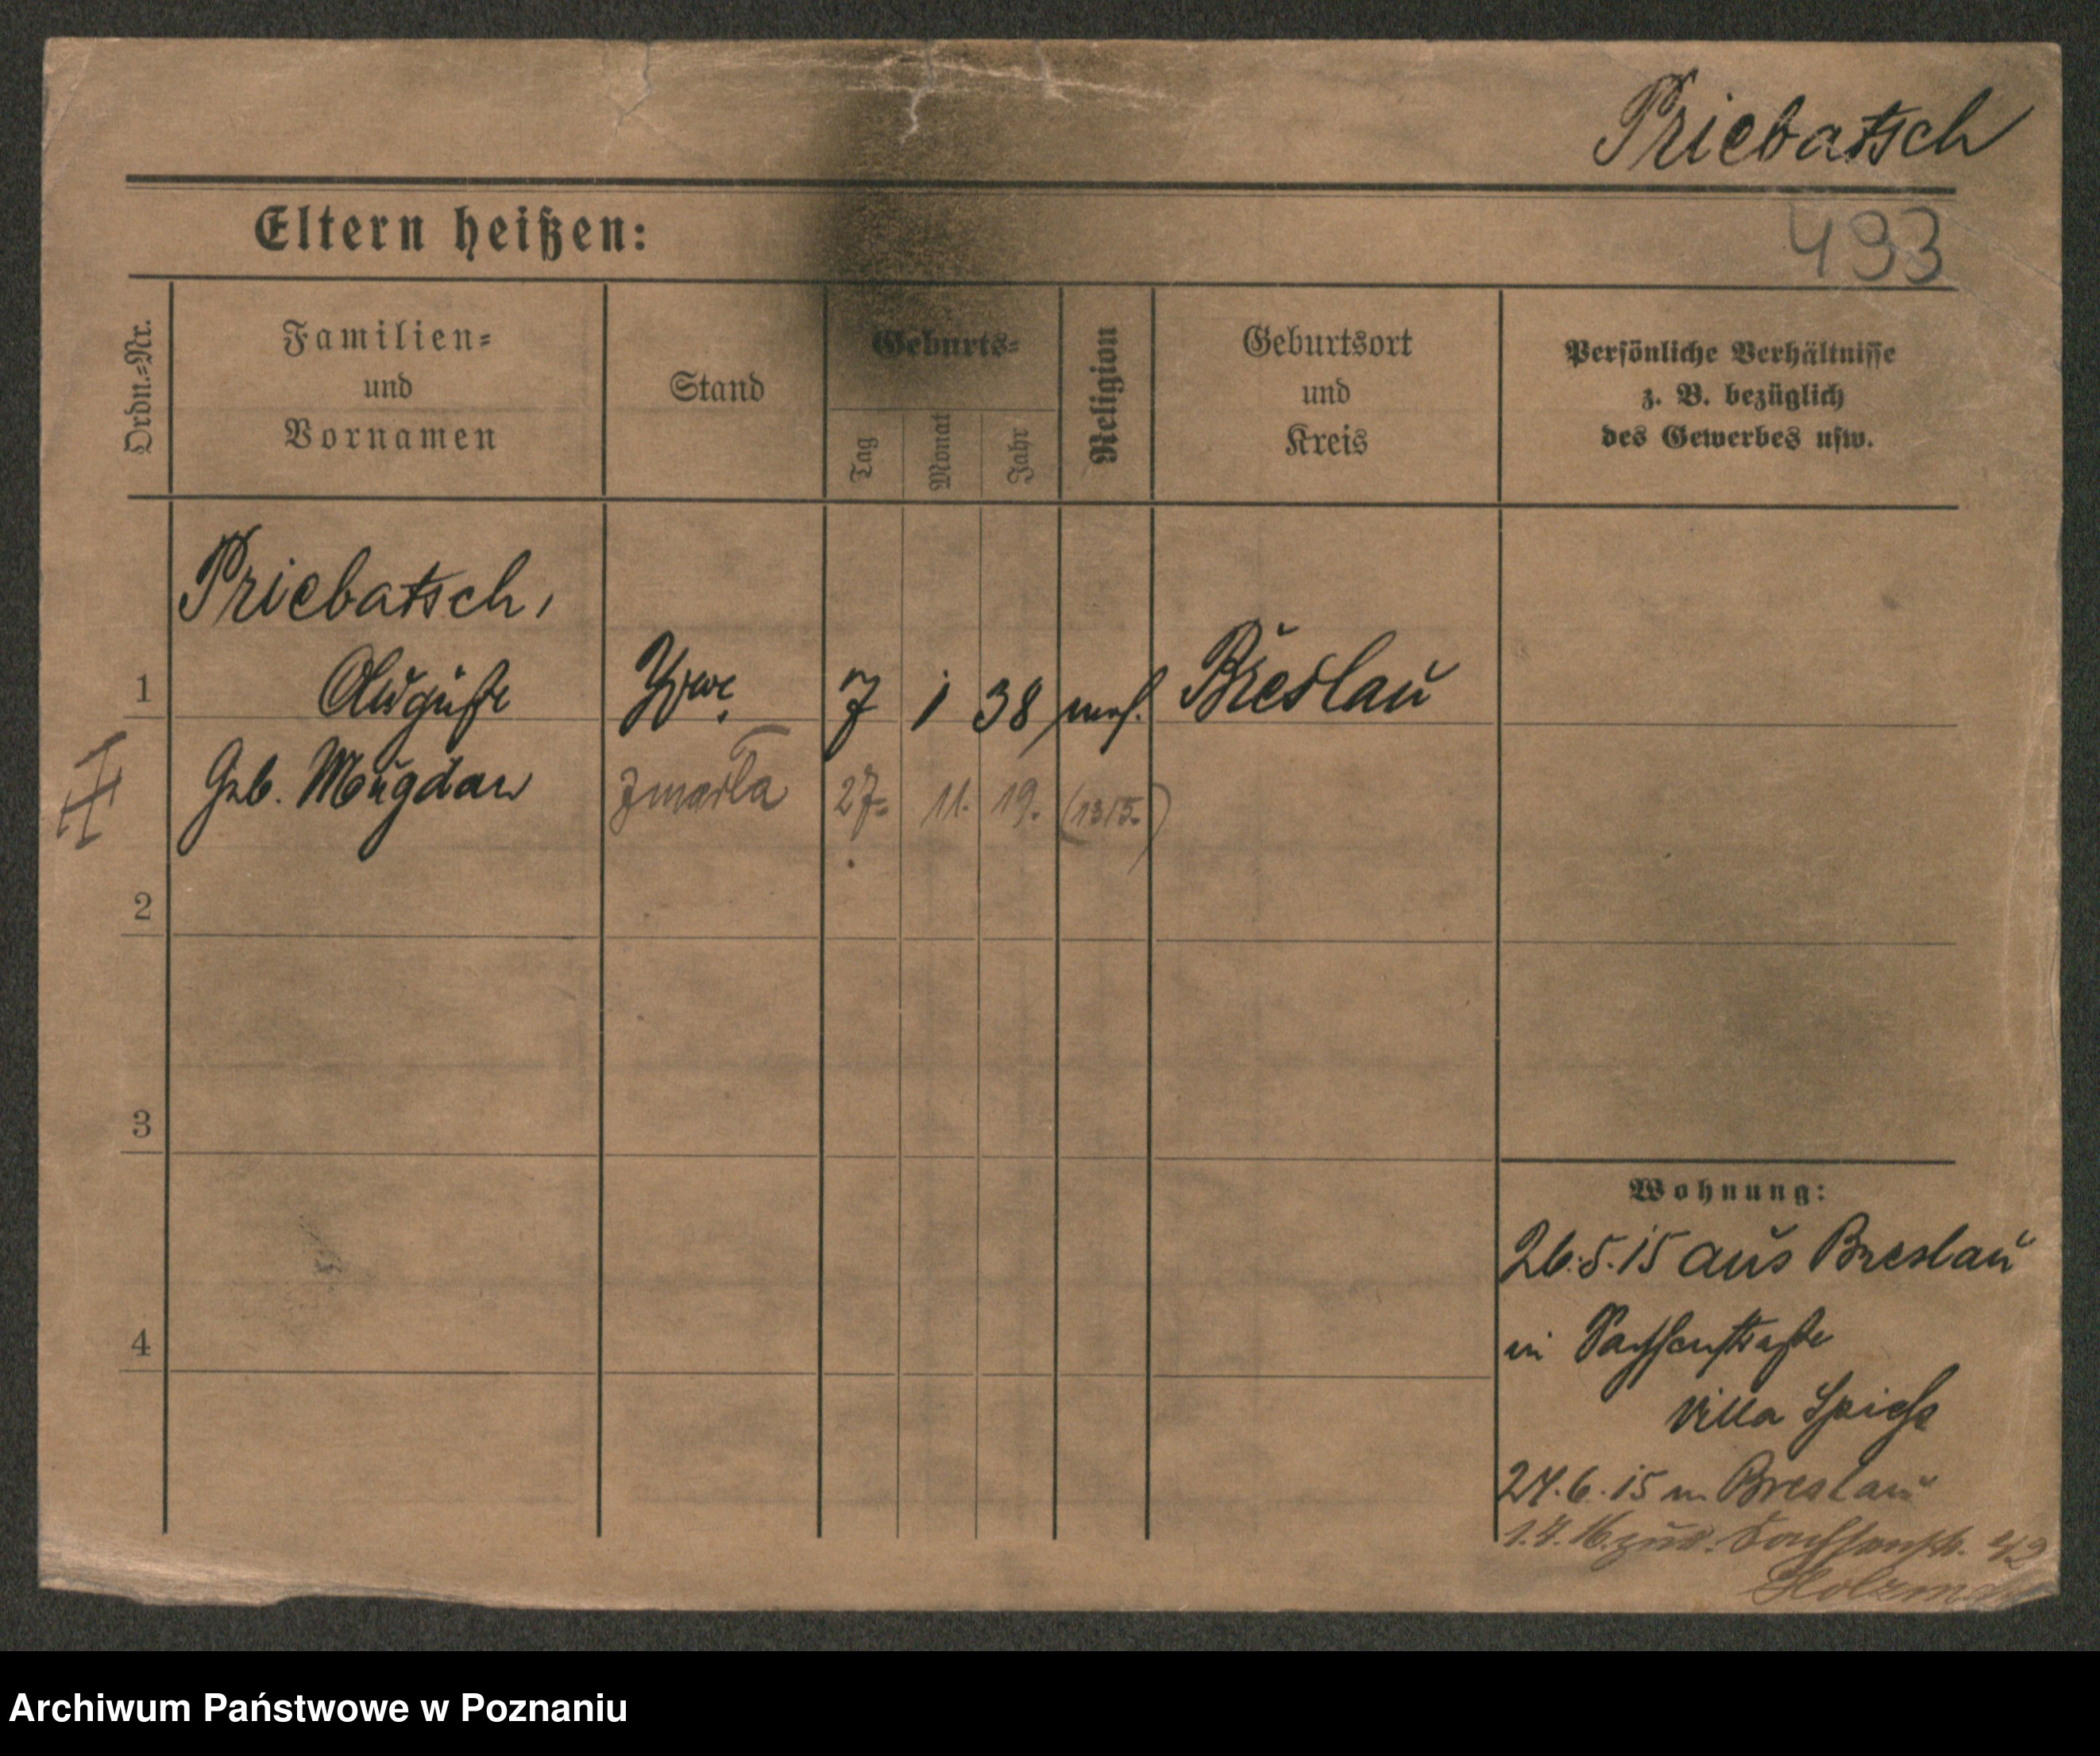 Priebatsch
493
Eltern heißen:
Ordn.-Nr.
Familien-
und
Vornamen
Stand
Geburts-
Tag
Monat
Jahr
Religion
Geburtsort
und
Kreis
Persönliche Verhältnisse
z. B. bezüglich
des Gewerbes usw.
Priebatsch,
1 Auguste Wwe. 7 1 38 mos. Breslau
Geb. Mugdan zmarła 27. 11. 19. (1315.)
2
3
4
Wohnung:
26.5.15 aus Breslau
in
Villa Spiess
24.6.15 n. Breslau
1.4.16. zur.
Archiwum Państwowe w Poznaniu